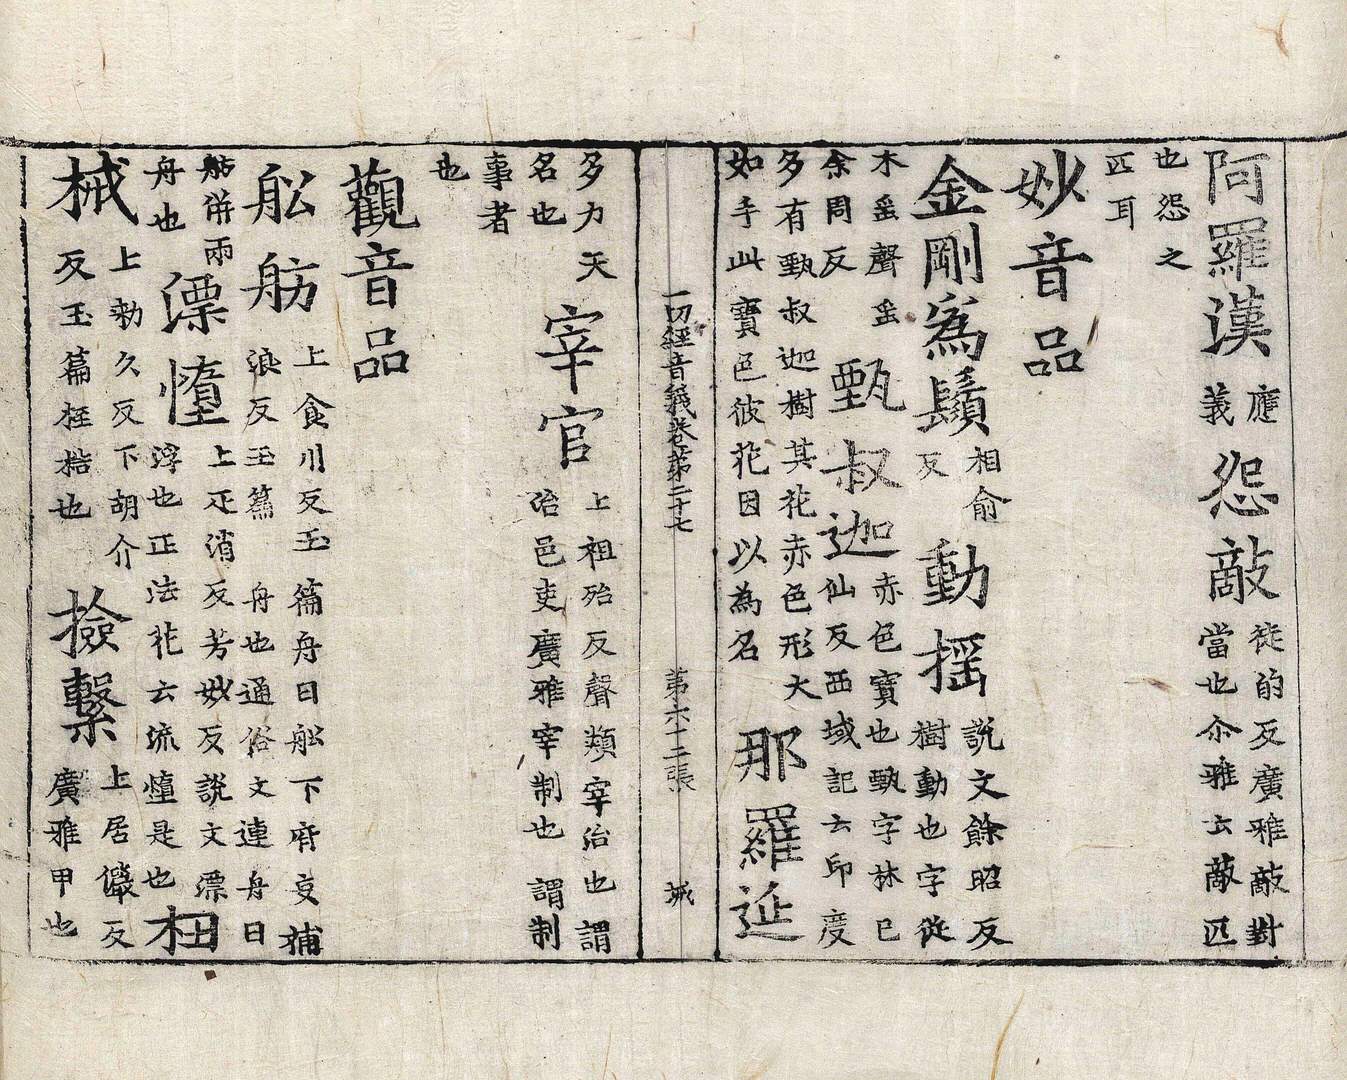 阿羅漢 應義 怨敵 徒的反廣雅敵對當也尒雅云敵匹
也怨之匹耳
妙音品
金剛為鬚 相俞反 動揺 說文餘昭反樹動也字從
木䍃聲䍃余周反 甄叔迦 赤色寶也甄字林已仙反西域記云印度
多有甄叔迦樹其花赤色形大如手此寶色彼花因以為名 那羅延
一切經音義卷第二十七 第六十二張 城
多力天名也 宰官 上祖殆反聲類宰治也謂治邑吏廣雅宰制也謂制
事者也
觀音品
舩舫 上食川反玉篇舟曰舩下府妄補浪反玉篇舟也通俗文連舟曰
舫併兩舟也 漂墮 上疋消反芳妙反說文漂浮也正法花云流墮是也 杻
械 上勑久反下胡介反玉篇桎梏也 撿繫 上居儼反廣雅甲也